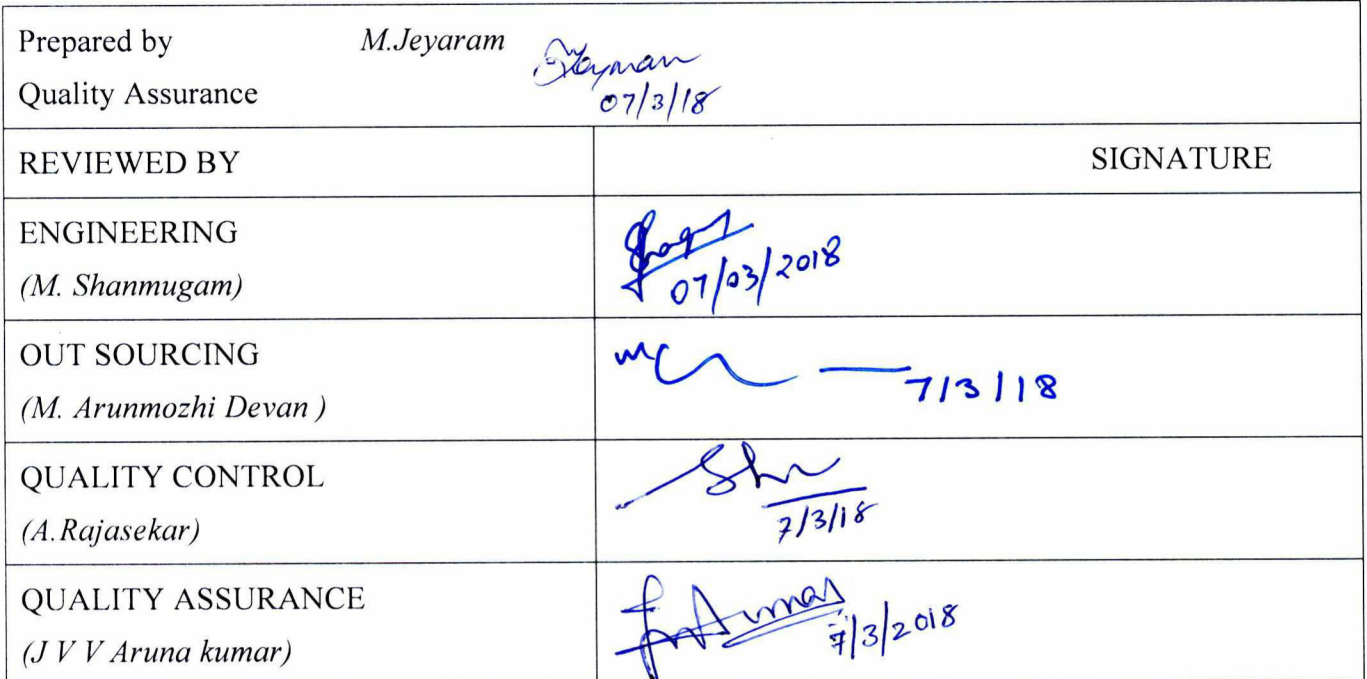 Prepared by M.Jeyaram
Quality Assurance 07/3/18
REVIEWED BY SIGNATURE
ENGINEERING
(M. Shanmugam) 07/03/2018
OUT SOURCING
(M. Arunmozhi Devan ) 7/3/18
QUALITY CONTROL
(A.Rajasekar) 7/3/18
QUALITY ASSURANCE
(J V V Aruna kumar) 7/3/2018